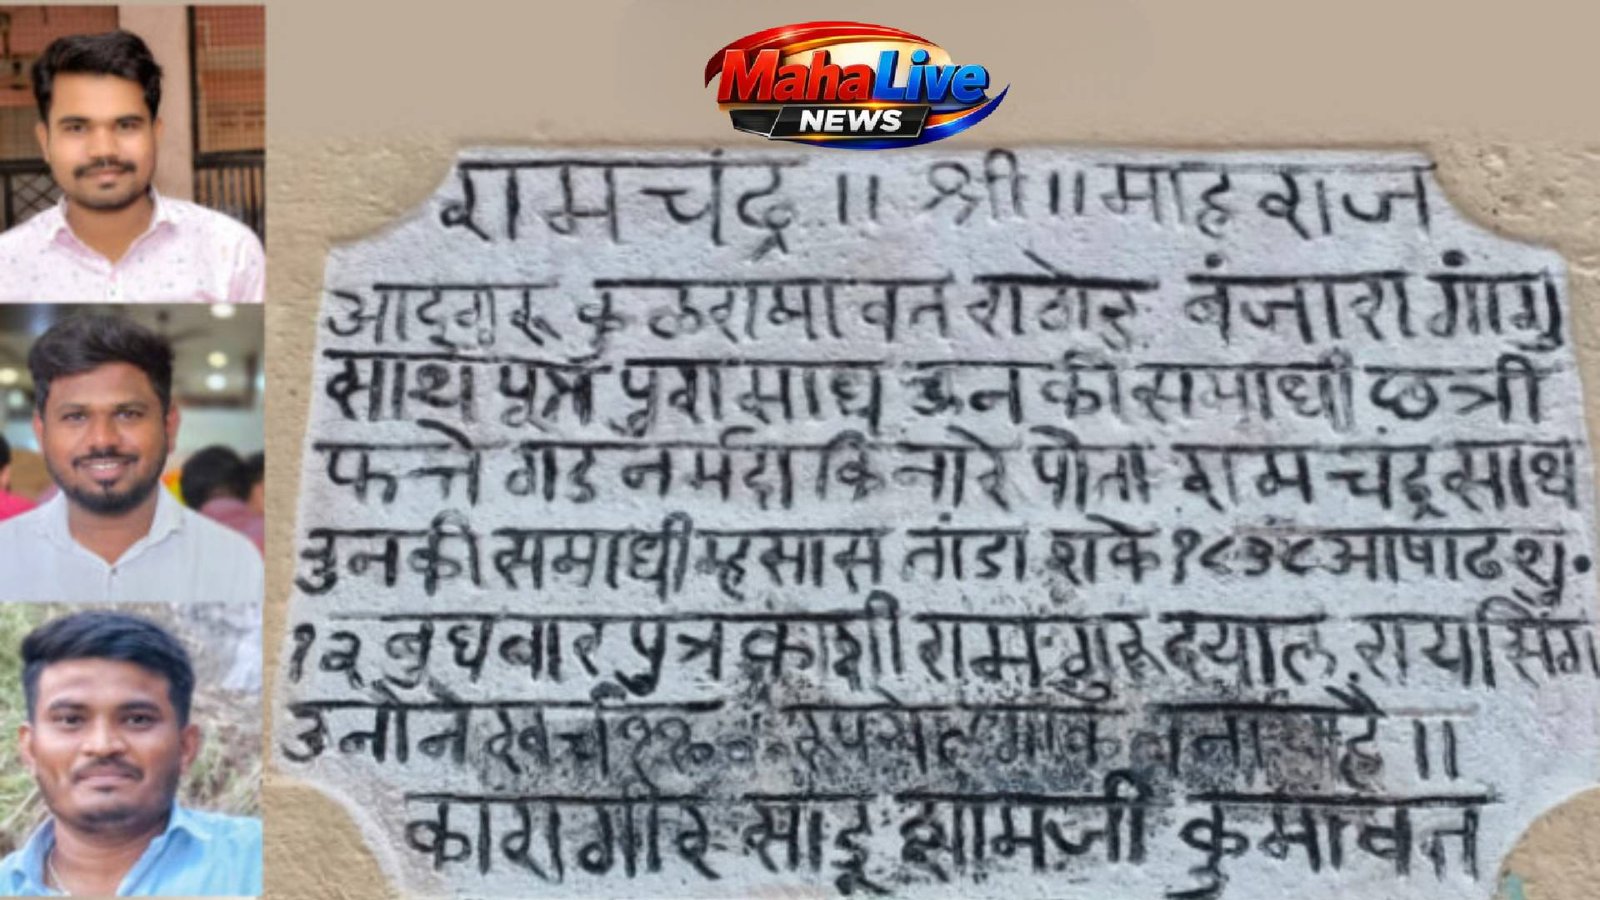 MahaLive
NEWS
रामचंद्र ॥ श्री ॥ माहराज
आदगुरू कुळरामावत राठोड बंजारा गांगु
साध पूत्र पुरासाध ऊनकी समाधी छत्री
फत्तेगड नर्मदा किनारे पौता रामचंद्र साध
उनकी समाधी म्हसास तांडा शके १८३८ आषाढ शु.
१२ बुधवार पुत्र काशीराम गुरूदयाल रायसिंग
उनोने खर्च
है ॥
कारागीर साडू झामजी कुमावत